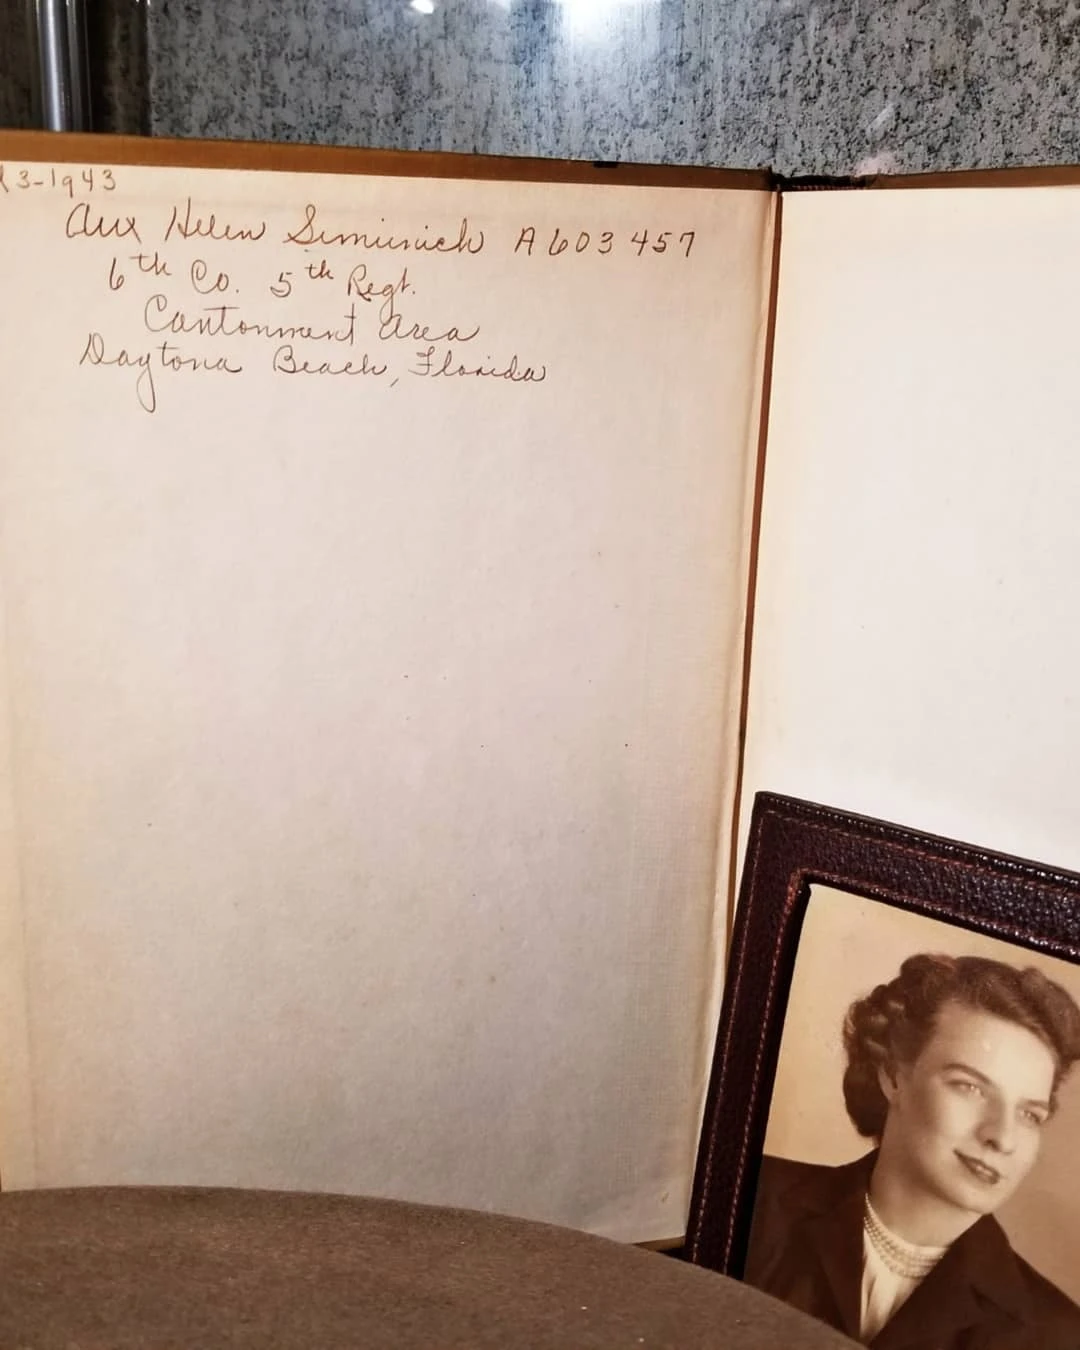 3-1943
Aux Helen Simunich A603457
6th Co. 5th Regt.
Cantonment Area
Daytona Beach, Florida